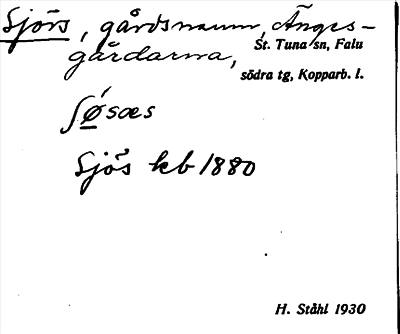 Sjörs, gårdsnamn, Änges-
gårdarna, St. Tuna sn, Falu
södra tg, Kopparb. l.
Sjös kb 1880
H. Ståhl 1930